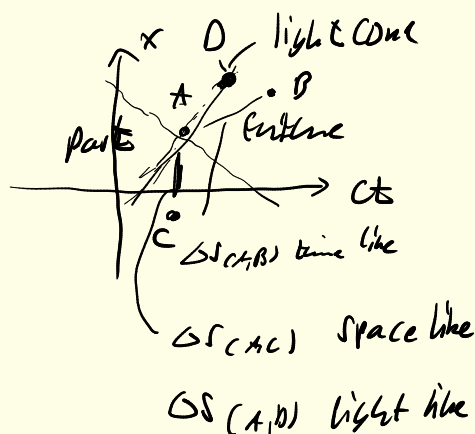 x D light cone
A B
Past future
ct
C
ΔS(A,B) time like
ΔS(AC) space like
ΔS(A,D) light like